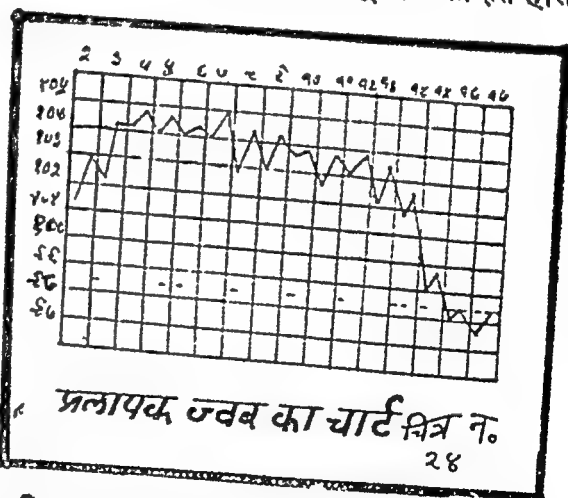 २ ३ ४ ५ ६ ७ ८ ९ १० ११ १२ १३ १४ १५ १६ १७
१०५
१०४
१०३
१०२
१०१
१००
९९
९८
९७
प्रलापक ज्वर का चार्ट चित्र न०
२४